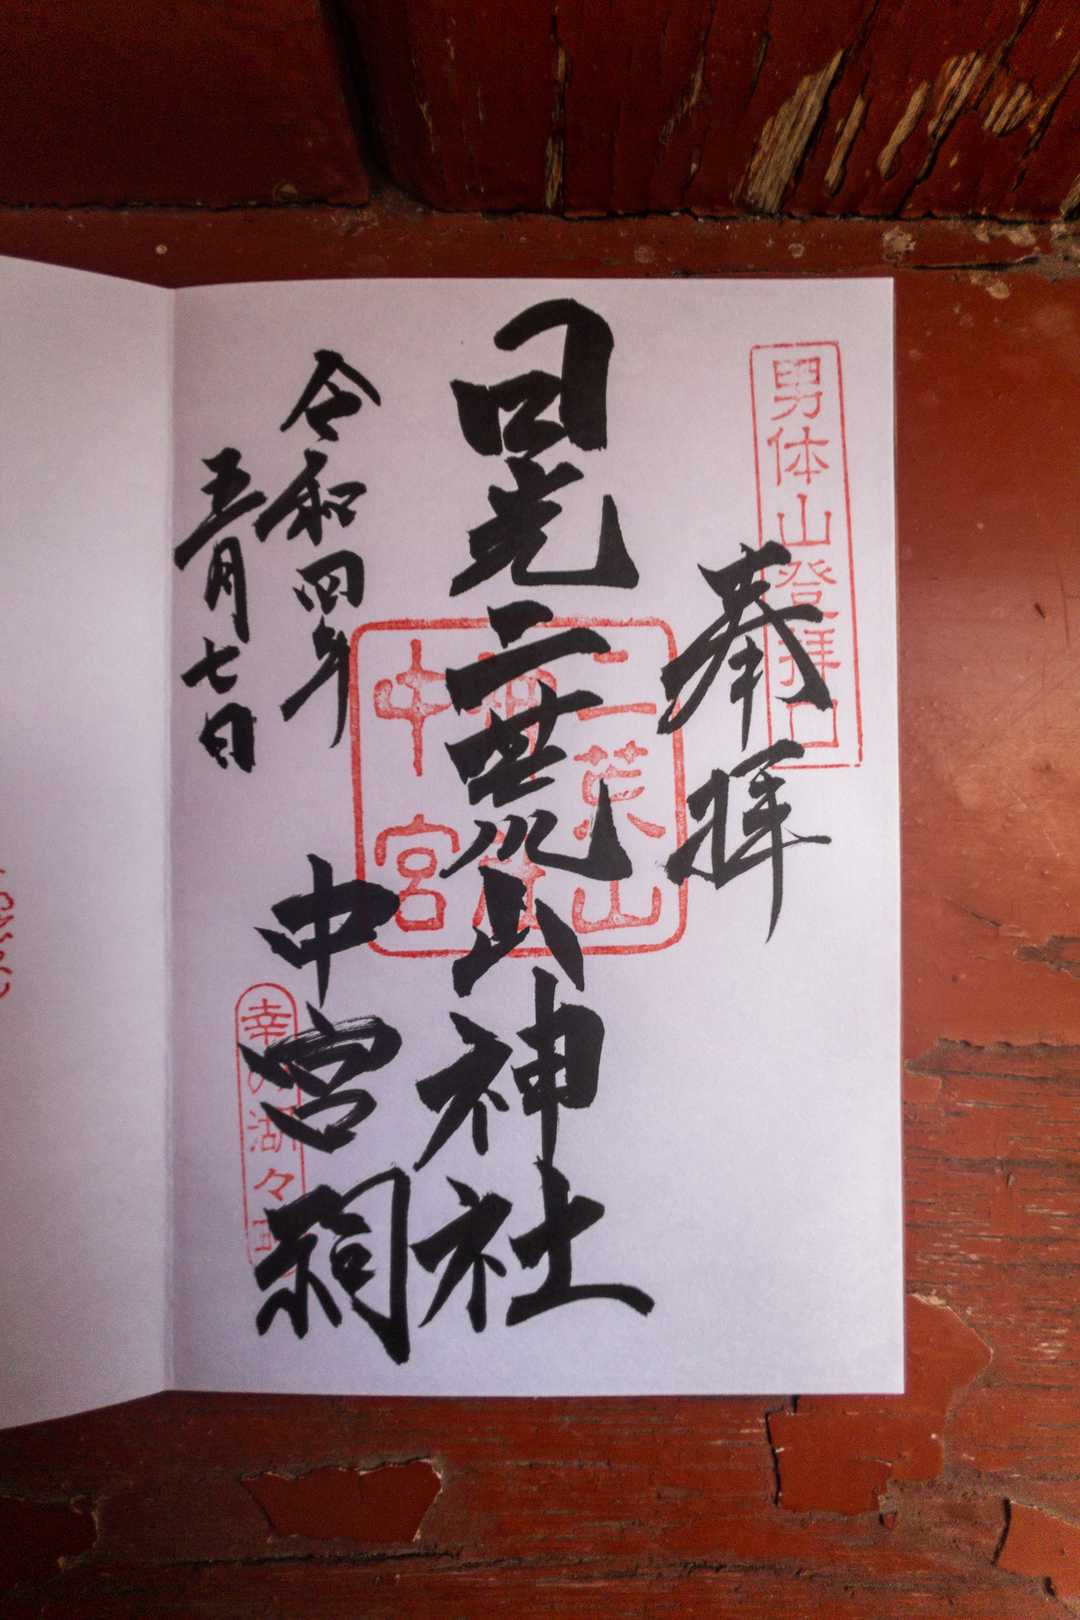 男体山登拝口
奉拝
日光二荒山神社
中宮祠
令和四年
五月七日
二荒山
中宮
幸の湖々